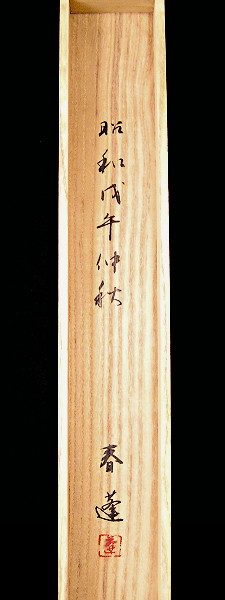 昭和戊午仲秋
春蓬